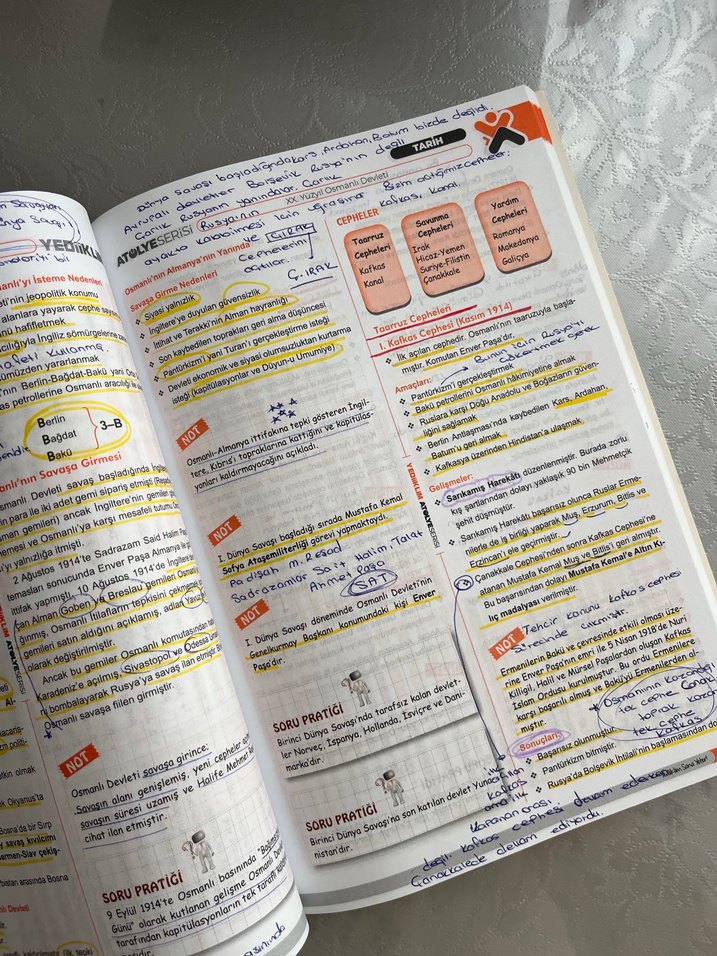 Dünya savaşı başladığında Kars, Ardahan, Batum bizde değildi.
Avrupalı devletler Bolşevik Rusya'nın değil
Çarlık Rusyanın yanındalar. Çarlık
Rusya'nın
ayakta kalabilmesi için uğraşırlar
Bizim açtığımız cepheler:
Kafkas, Kanal.
ve ÇIRAK
cephelerini
açtılar.
Ç. IRAK
TARİH
ATÖLYESERİSİ
XX. Yüzyıl Osmanlı Devleti
Osmanlı'nın Almanya'nın Yanında
Savaşa Girme Nedenleri
Siyasi yalnızlık
İngiltere'ye duyulan güvensizlik
İttihat ve Terakki'nin Alman hayranlığı
Son kaybedilen toprakları geri alma düşüncesi
Pantürkizm'i yani Turan'ı gerçekleştirme isteği
Devleti ekonomik ve siyasi olumsuzluktan kurtarma
isteği (kapitülasyonlar ve Düyun-u Umumiye)
NOT
Osmanlı-Almanya ittifakına tepki gösteren İngil-
tere, Kıbrıs'ı topraklarına kattığını ve kapitülas-
yonları kaldırmayacağını açıkladı.
NOT
I. Dünya Savaşı başladığı sırada Mustafa Kemal
Sofya Ataşemiliterliği görevi yapmaktaydı.
Padişah M. Reşad
Sadrazamlar Sait Halim, Talat
Ahmet Paşa
SAT
NOT
I. Dünya Savaşı döneminde Osmanlı Devleti'nin
Genelkurmay Başkanı konumundaki kişi Enver
Paşa'dır.
SORU PRATİĞİ
Birinci Dünya Savaşı'nda tarafsız kalan devlet-
ler Norveç, İspanya, Hollanda, İsviçre ve Dani-
marka'dır.
SORU PRATİĞİ
Birinci Dünya Savaşı'na son katılan devlet Yuna-
nistan'dır.
CEPHELER
Taarruz
Cepheleri
Kafkas
Kanal
Savunma
Cepheleri
Irak
Hicaz-Yemen
Suriye-Filistin
Çanakkale
Yardım
Cepheleri
Romanya
Makedonya
Galiçya
Taarruz Cepheleri
1. Kafkas Cephesi (Kasım 1914)
İlk açılan cephedir. Osmanlı'nın taarruzuyla başla-
mıştır. Komutan Enver Paşa'dır.
Bunun için Rusya'yı
çökertmek gerek
Amaçları:
Pantürkizm'i gerçekleştirmek
Bakü petrollerini Osmanlı hâkimiyetine almak
Ruslara karşı Doğu Anadolu ve Boğazların güven-
liğini sağlamak
Berlin Antlaşması'nda kaybedilen Kars, Ardahan,
Batum'u geri almak
Kafkasya üzerinden Hindistan'a ulaşmak
YEDİİKLİM ATÖLYESERİSİ
Gelişmeler:
Sarıkamış Harekâtı düzenlenmiştir. Burada zorlu
kış şartlarından dolayı yaklaşık 90 bin Mehmetçik
şehit düşmüştür.
Sarıkamış Harekâtı başarısız olunca Ruslar Erme-
nilerle de iş birliği yaparak Muş, Erzurum, Bitlis ve
Erzincan'ı ele geçirmiştir.
Çanakkale Cephesi'nden sonra Kafkas Cephesi'ne
atanan Mustafa Kemal Muş ve Bitlis'i geri almıştır.
Bu başarısından dolayı Mustafa Kemal'e Altın Kı-
lıç madalyası verilmiştir.
NOT
Tehcir kanunu Kafkas cephesi
sürecinde çıkmıştır.
Ermenilerin Bakü ve çevresinde etkili olması üze-
rine Enver Paşa'nın emri ile 5 Nisan 1918'de Nuri
Killigil, Halil ve Mürsel Paşalardan oluşan Kafkas
İslam Ordusu kurulmuştur. Bu ordu Ermenilere
karşı başarılı olmuş ve Bakü'yü Ermenilerden al-
mıştır.
Osmanlının kazandığı
tek cephe
toprak
tek cephe
Kafkas
Sonuçları:
Başarısız olunmuştur.
Pantürkizm bitmiştir.
Rusya'da Bolşevik İhtilali'nin başlamasından do-
ilk
açılan
Kafkas
ama ilk
kapanan orası
değil. Kafkas cephesi devam ederken
Çanakkalede devam ediyordu.
YEDİİKLİM
manlı'yı İsteme Nedenleri
eti'nin jeopolitik konumu
alanlara yayarak cephe sayısını
ünü hafifletmek
acılığıyla İngiliz sömürgelerine
cümüzden yararlanmak
'nın Berlin-Bağdat-Bakü yani
as petrollerine Osmanlı aracılığı ile
Berlin
Bağdat
Bakü
3-B
anlı'nın Savaşa Girmesi
Osmanlı Devleti savaş başladığında İngiltere
ın para ile iki adet gemi sipariş etmişti
sman gemileri) ancak İngiltere'nin gemileri
emesi ve Osmanlı'ya karşı mesafeli tutumu
'yı yalnızlığa itmişti.
2 Ağustos 1914'te Sadrazam Said Halim Paşa
temasları sonucunda Enver Paşa Almanya ile
ittifak yapmıştı. 10 Ağustos 1914'de İngilizlerden
an Alman Goben ve Breslau gemileri Osmanlı
ğınmış, Osmanlı İtilafların tepkisini çekmemek
gemileri satın aldığını açıklamış, adları Yavuz
olarak değiştirilmiştir.
Ancak bu gemiler, Osmanlı komutasından
Karadeniz'e açılmış, Sivastopol ve Odessa
nı bombalayarak Rusya'ya savaş ilan etmiştir.
Osmanlı savaşa fiilen girmiştir.
NOT
Osmanlı Devleti savaşa girince;
Savaşın alanı genişlemiş, yeni cepheler
savaşın süresi uzamış ve Halife Mehmet
cihat ilan etmiştir.
SORU PRATİĞİ
9 Eylül 1914'te Osmanlı basınında "Bağımsızlık
Günü" olarak kutlanan gelişme Osmanlı Devleti
tarafından kapitülasyonların tek taraflı